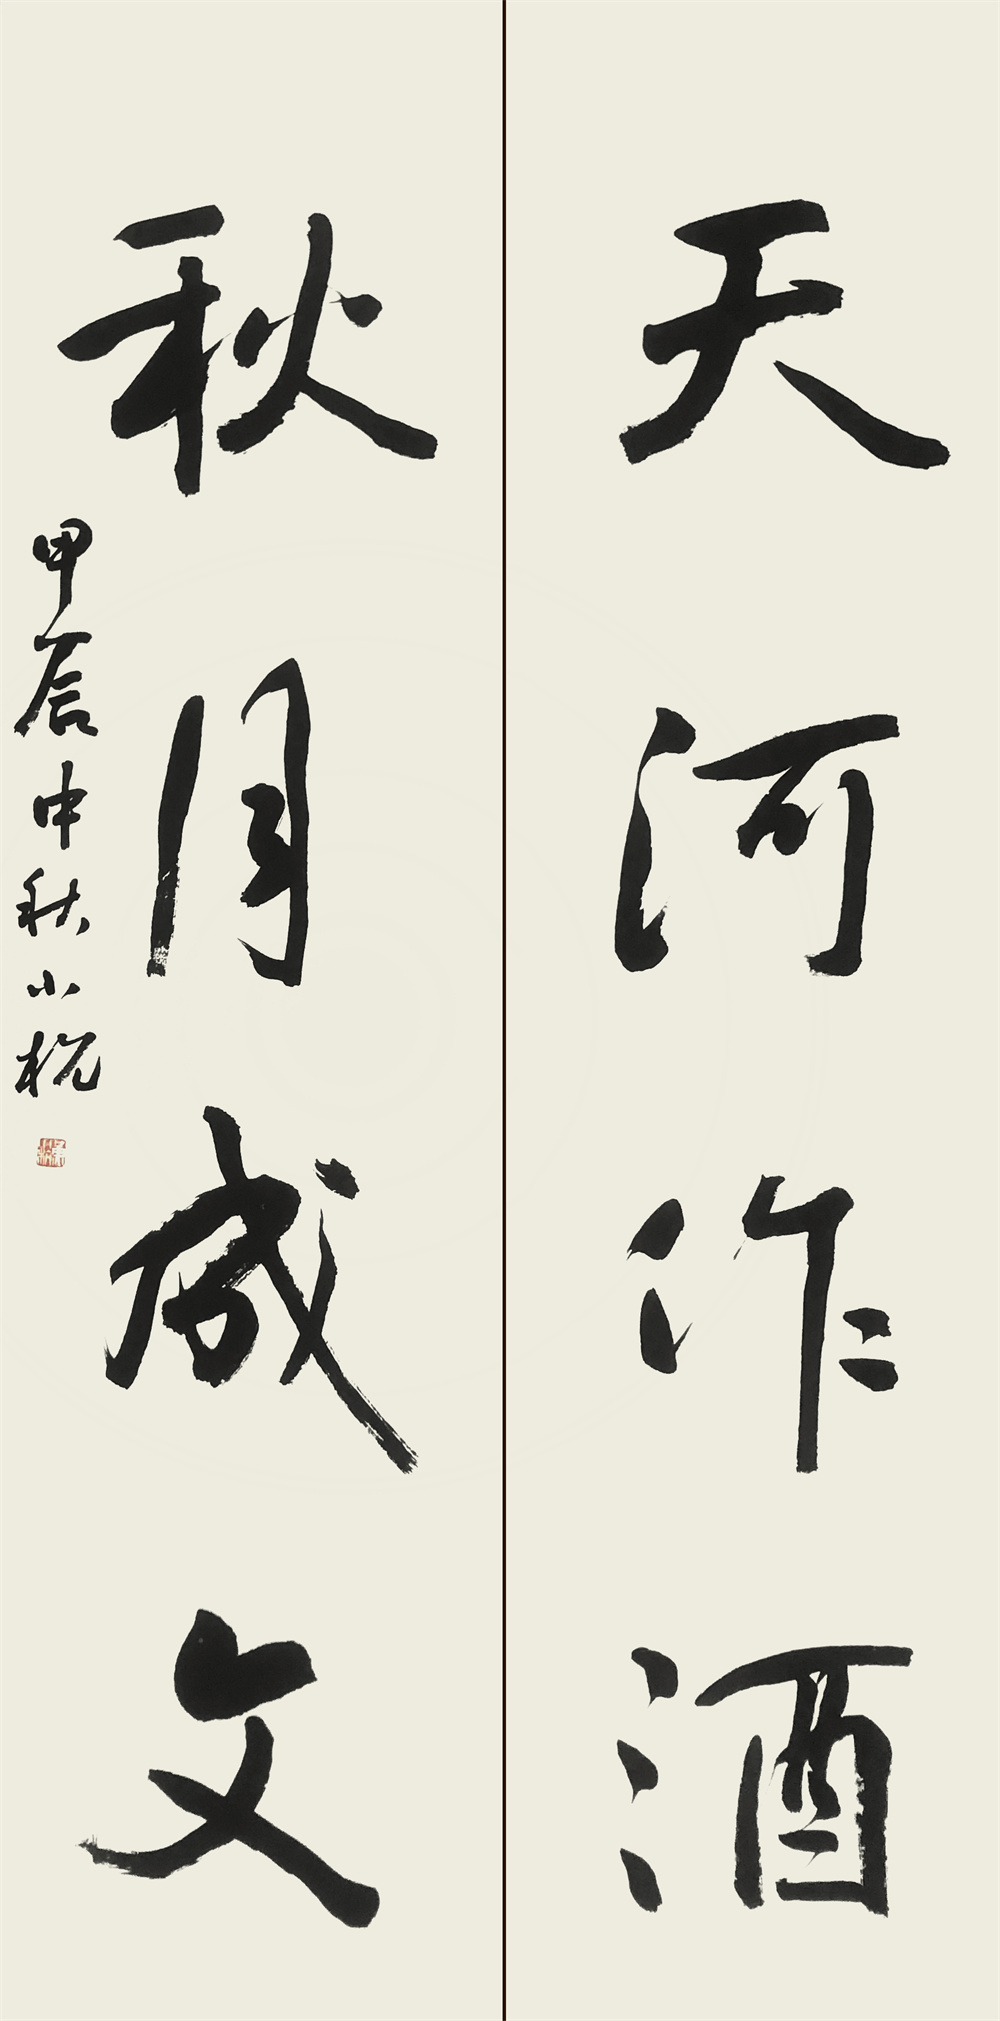 天河作酒
秋月成文
甲辰中秋小杭